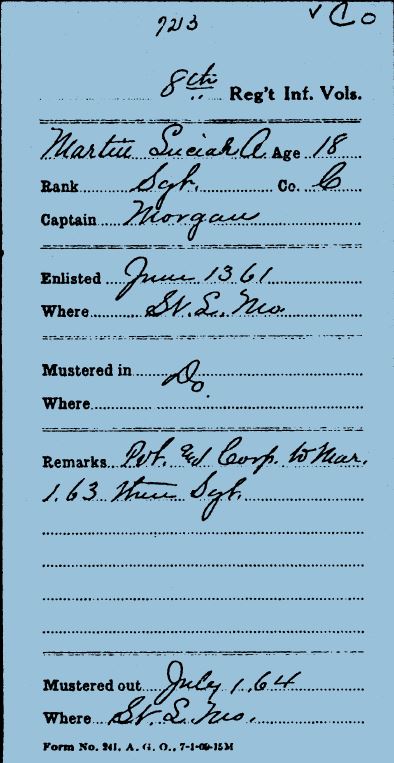 723 ✓ C O
8th Reg't Inf. Vols.
Martin Luciah A. Age 18
Rank Sgt. Co. C
Captain Morgan
Enlisted June 13 61
Where St. L. Mo.
Mustered in Do.
Where
Remarks Pvt. and Corp. to Mar.
1.63 then Sgt.
Mustered out July 1.64
Where St. L. Mo.
Form No. 241, A. G. O., 7-1-09-15M